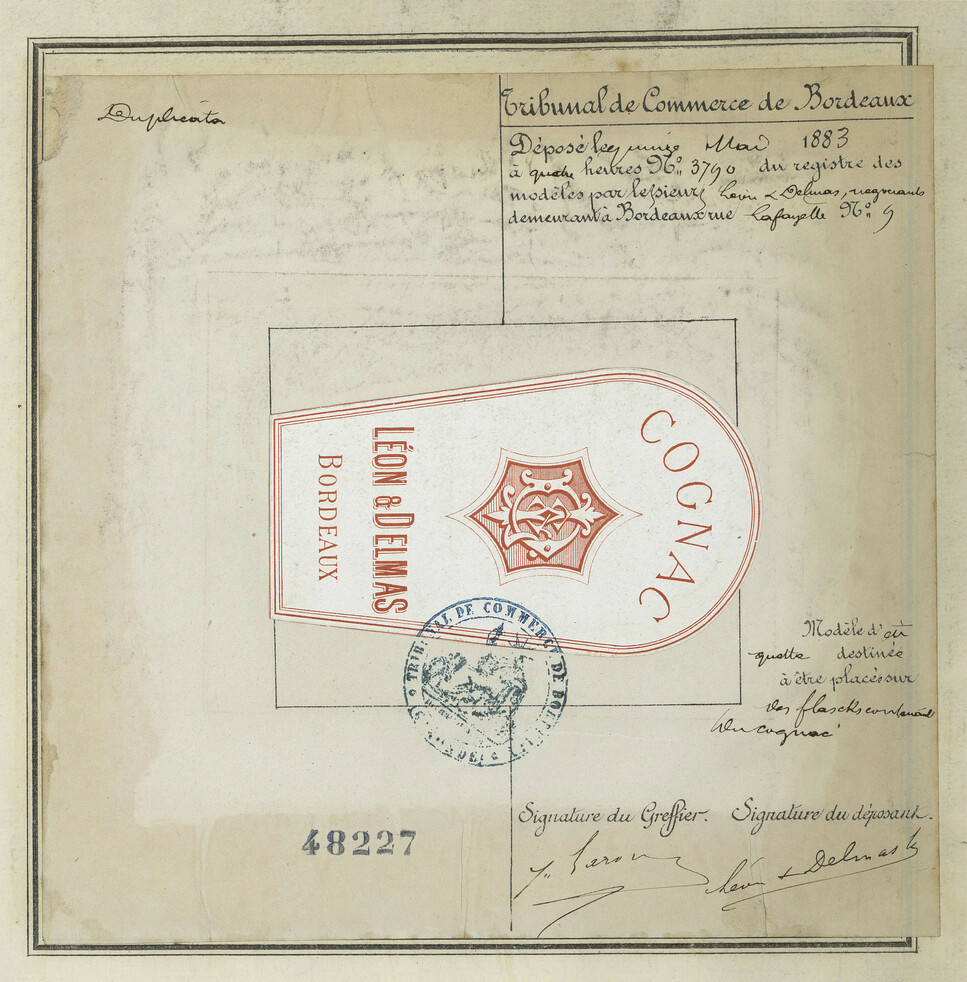 Duplicata
Tribunal de Commerce de Bordeaux
Déposé le quinze Mai 1883
à quatre heures No. 3790 du registre des
modèles par le sieurs Léon & Delmas, négociants
demeurant à Bordeaux rue Lafayette No. 9
COGNAC
LÉON & DELMAS
BORDEAUX
TRIBUNAL DE COMMERCE DE BORDEAUX
Modèle d'éti
quette destinée
à être placée sur
des flascks contenant
du cognac
48227
Signature du Greffier. Signature du déposant.
Léon & Delmas